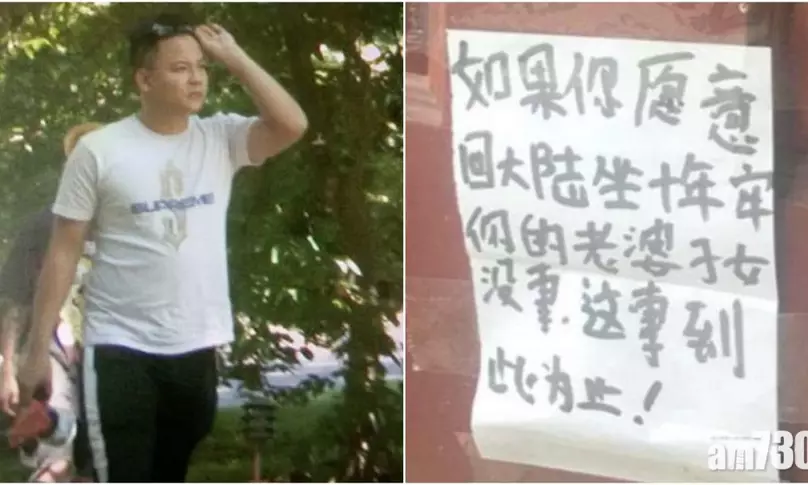 SUPREME
如果你愿意
回大陆坐十年牢
你的老婆子女
没事.这事到
此为止!
am730